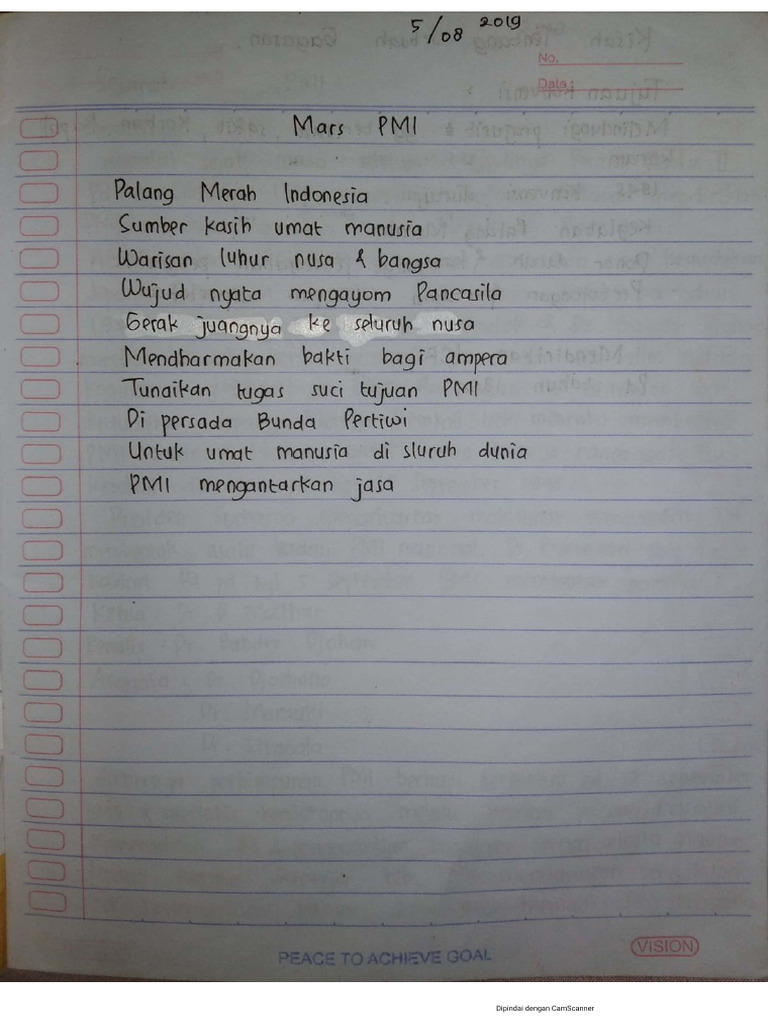 5/08 2019
No.
Date :
Mars PMI
Palang Merah Indonesia
Sumber kasih umat manusia
Warisan luhur nusa & bangsa
Wujud nyata mengayom Pancasila
Gerak juangnya ke seluruh nusa
Mendharmakan bakti bagi ampera
Tunaikan tugas suci tujuan PMI
Di persada Bunda Pertiwi
Untuk umat manusia di sluruh dunia
PMI mengantarkan jasa
PEACE TO ACHIEVE GOAL
VISION
Dipindai dengan CamScanner